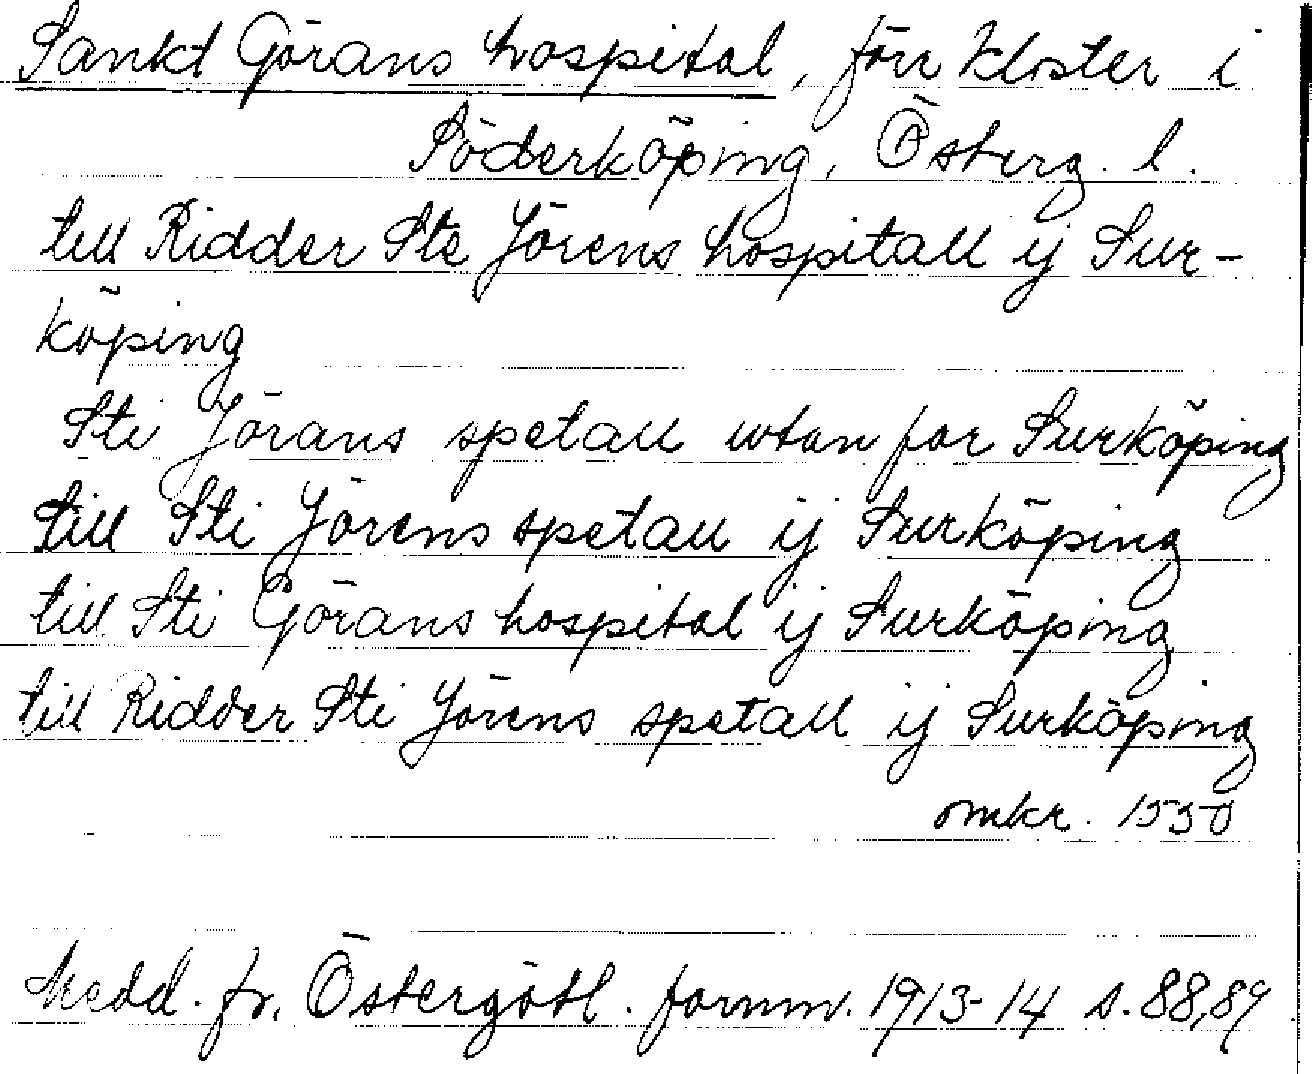 Sankt Görans hospital, förr kloster i
Söderköping, Österg. l.
till Ridder Ste Jörens hospitall ij Sur-
köping
Sti Jörans spetall utan for Surköping
till Sti Jörens spetall ij Surköping
till Sti Görans hospital ij Surköping
till Ridder Sti Jörens spetall ij Surköping
omkr. 1550
Medd. fr. Östergötl. fornm. 1913-14 s. 88, 89